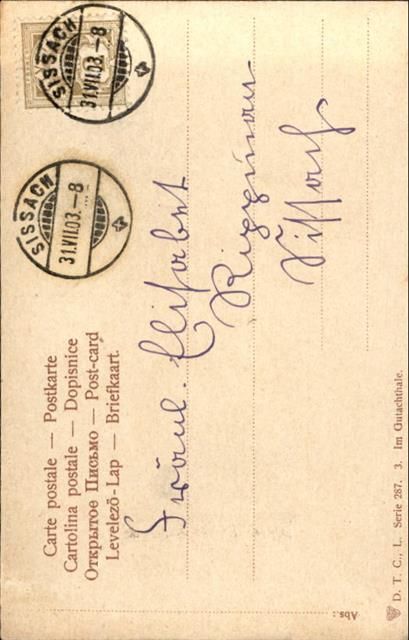 SISSACH
31.VII.03.-8
SISSACH
31.VII.03.-8
Carte postale — Postkarte
Cartolina postale — Dopisnice
Открытое Письмо — Post-card
Levelező-Lap — Briefkaart
Fräul. Elisabet
Rippman
Sissach
Abs.:
D. T. C., L. Serie 287. 3. Im Gutachthale.